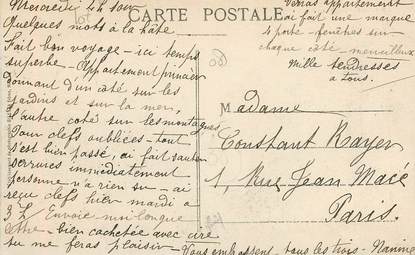 Mercredi 4h soir
CARTE POSTALE
Quelques mots à la hâte
Fait bon voyage - ici temps
superbe - Appartement princier
donnant d'un côté sur les
jardins et sur la mer,
l'autre côté sur les montagnes
Pour clefs oubliées - tout
s'est bien passé, ai fait sauter
serrures immédiatement
personne n'a rien su - ai
reçu clefs hier mardi à
3h Envoie moi longue
lettre - bien cachetée avec cire
tu me feras plaisir - Vous embrassent tous les trois - Nanine
appartement
ai fait une marque
4 porte-fenêtres sur
chaque côté - merveilleux
Mille tendresses
à tous.
Madame
Constant Rayer
1, Rue Jean Macé
Paris.